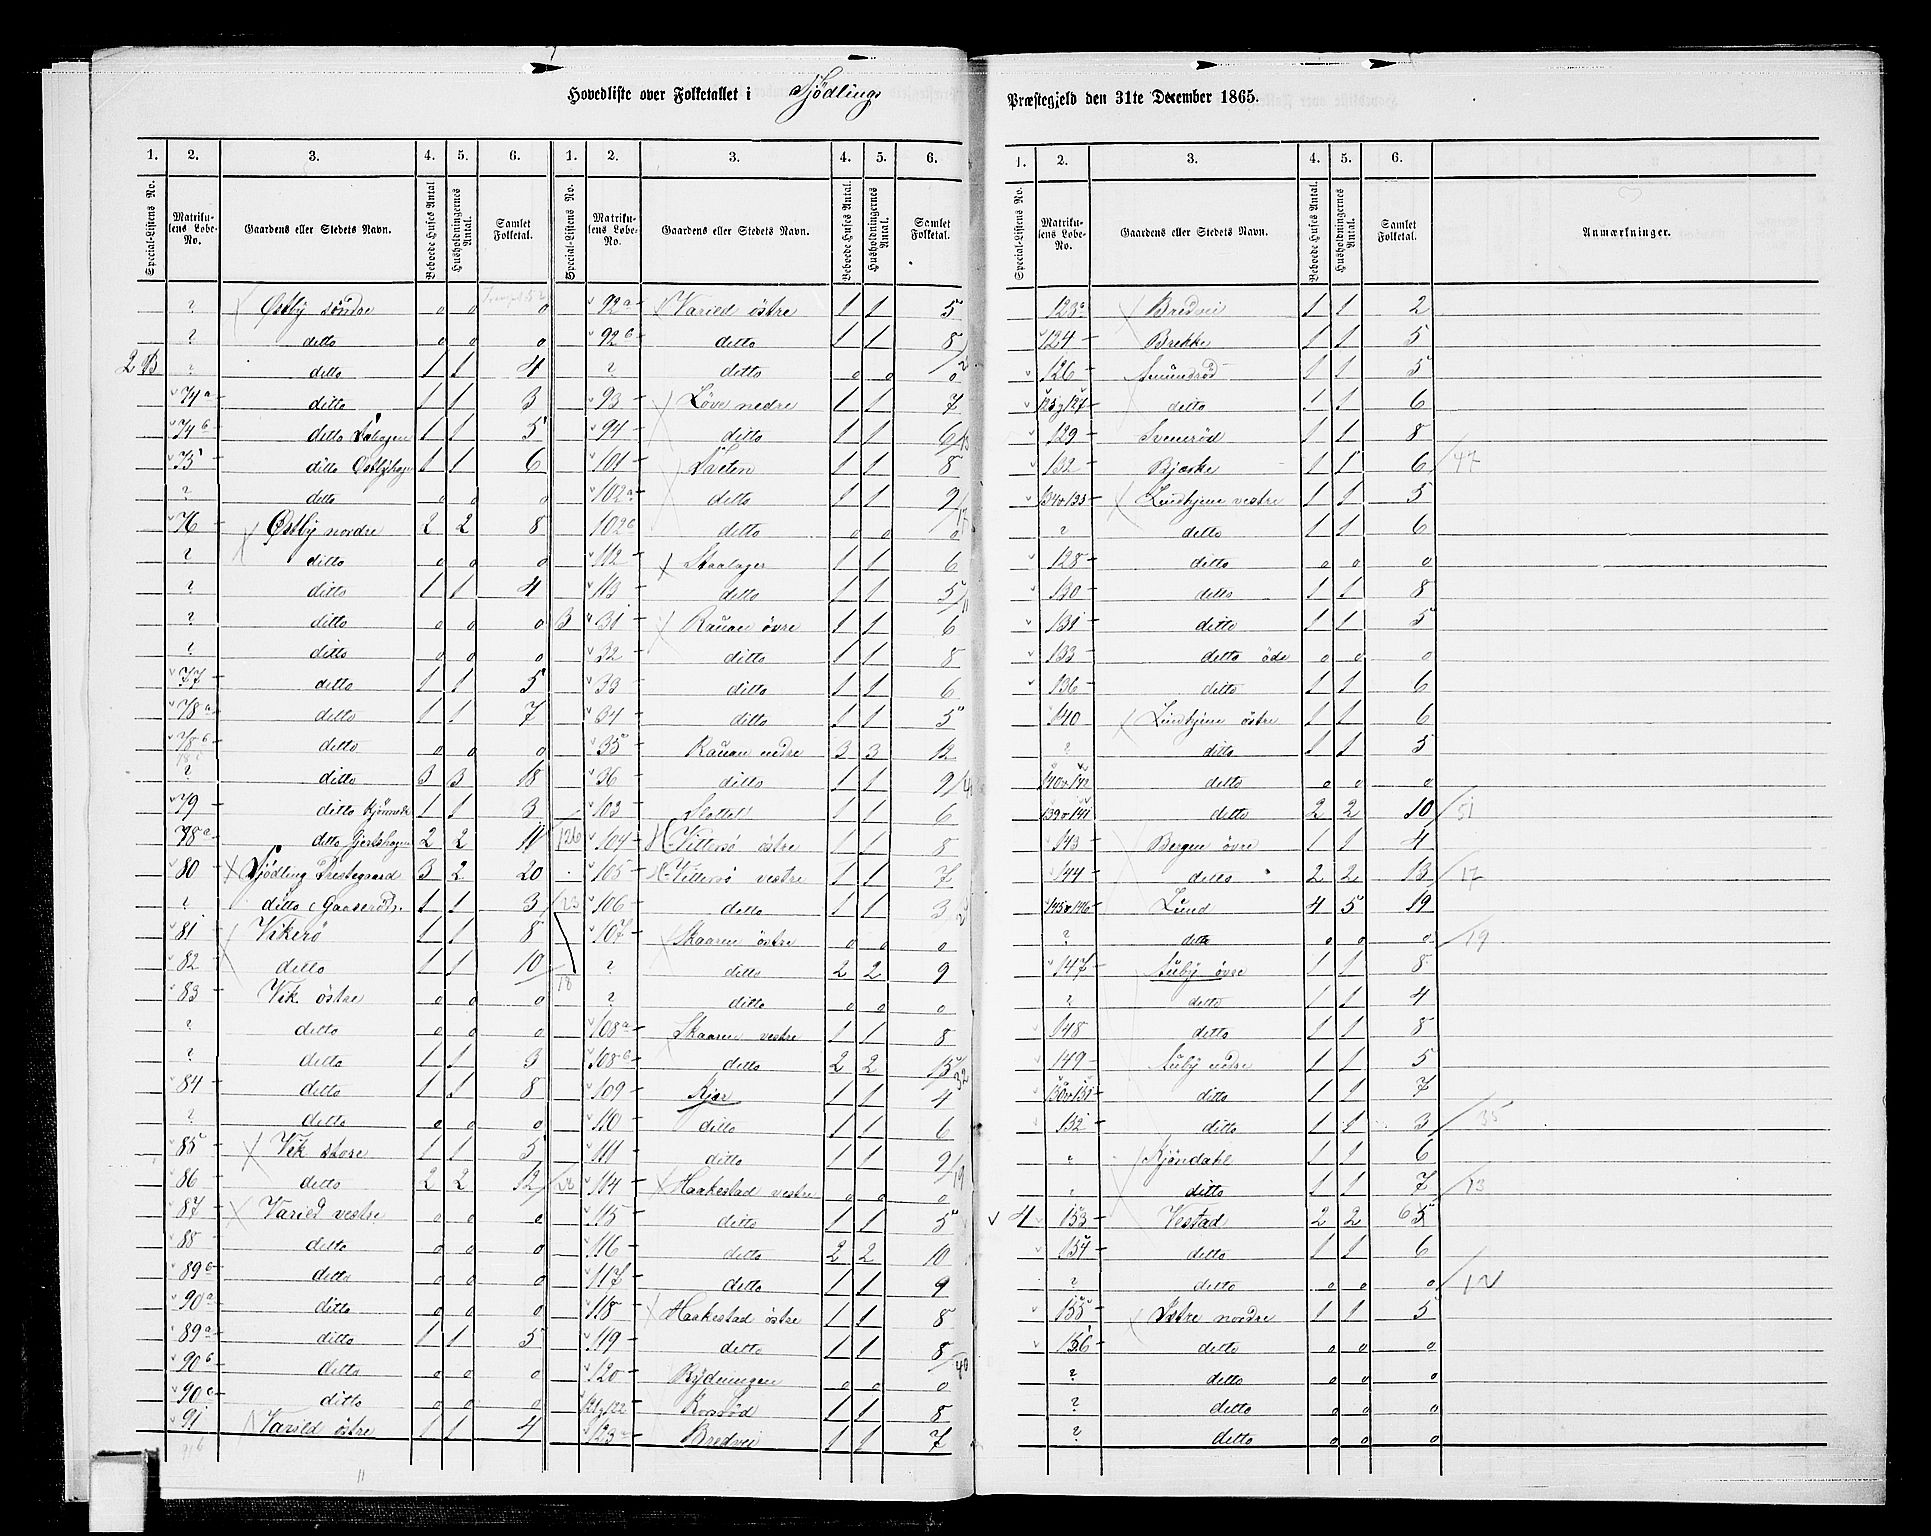 Hovedliste over Folketallet i Tjödlings Præstegjeld den 31te December 1865.
1. 2. 3. 4. 5. 6. 1. 2. 3. 4. 5. 6.
Special-Listens No. Matrikulens Løbe-No. Gaardens eller Stedets Navn. Beboede Huses Antal Husholdningernes Antal. Samlet Folketal. Special-Listens No. Matrikulens Løbe-No. Gaardens eller Stedets Navn. Beboede Huses Antal. Husholdningernes Antal. Samlet Folketal.
? Østby söndre 0 0 0
? ditto 0 0 0
2 B ? ditto 1 1 4
74a ditto 1 1 3
74b ditto 1 1 5
75 ditto Østbyhagen 1 1 6
? ditto 0 0 0
76 Østby nordre 2 2 8
? ditto 0 0 0
? ditto 1 1 4
? ditto 0 0 0
? ditto 0 0 0
77 ditto 1 1 5
78a ditto 1 1 7
78b ditto 0 0 0
? ditto 3 3 18
79 ditto 1 1 3
78c ditto Gjertshagen 2 2 11 /126
80 Tjödling Prestegaard 3 2 20
? ditto (Gaaseröd) 1 1 3 /23
81 Vikerö 1 1 8
82 ditto 1 1 10 /18
83 Vik östre 0 0 0
? ditto 0 0 0
? ditto 1 1 3
84 ditto 1 1 8
? ditto 0 0 0
85 Vik store 1 1 5
86 ditto 2 2 12 /28
87 Varild vestre 0 0 0
88 ditto 0 0 0
89b ditto 0 0 0
90a ditto 0 0 0
89a ditto 1 1 5
90b ditto 0 0 0
90c ditto 0 0 0
91 Varild östre 1 1 4
91b
92a Varild östre 1 1 5
92b ditto 1 1 8
? ditto 0 0 0
93 Löve nedre 1 1 7
94 ditto 1 1 6 /13
101 Sæten 1 1 8
102a ditto 1 1 9 /17
102b ditto 0 0 0
112 Skaalager 1 1 6
113 ditto 1 1 5 /11
3 31 Rauan övre 1 1 6
32 ditto 1 1 8
33 ditto 1 1 6
34 ditto 1 1 5
35 Rauan nedre 3 3 12
36 ditto 1 1 9
103 Slottet 1 1 6
104 Vittersö östre 1 1 8
105 Vittersö vestre 1 1 7
106 ditto 1 1 3
107 Skaaren östre 0 0 0
? ditto 2 2 9
? ditto 0 0 0
108a Skaaren vestre 1 1 8
108b ditto 2 2 15 /32
109 Kjær 1 1 4
110 ditto 1 1 6
111 ditto 1 1 9 /19
114 Haakestad vestre 0 0 0
115 ditto 1 1 5
116 ditto 2 2 10
117 ditto 1 1 9
118 Haakestad östre 1 1 8
119 ditto 1 1 8 /40
120 Rydningen 0 0 0
121 & 122 Korsöd 1 1 8
123a Bredvei 1 1 7
1. 2. 3. 4. 5. 6.
Special-Listens No. Matrikulens Løbe-No. Gaardens eller Stedets Navn. Beboede Huses Antal. Husholdningernes Antal. Samlet Folketal. Anmærkninger.
123b Bredvei 1 1 2
124 Brekke 1 1 5
126 Amundröd 1 1 5
125 & 127 ditto 1 1 6
129 Svenröd 1 1 8
132 Bjerke 1 1 6 /47
134 & 135 Lindhjem vestre 1 1 5
? ditto 1 1 6
128 ditto 0 0 0
130 ditto 1 1 8
131 ditto 1 1 5
133 ditto öde 0 0 0
136 ditto 1 1 6
140 Lindhjem östre 1 1 6
? ditto 1 1 5
ditto 0 0 0
139 & 141 ditto 2 2 10 /51
143 Bergen övre 1 1 4
144 ditto 2 2 13 /17
145 & 146 Lund 4 5 19
? ditto 0 0 0 /19
147 Auby övre 1 1 8
? ditto 1 1 4
148 ditto 1 1 8
149 Auby nedre 1 1 5
150 & 151 ditto 1 1 7
152 ditto 1 1 3 /35
Kjöndahl 1 1 6
ditto 1 1 7 /13
4 153 Vestad 2 2 65
154 ditto 1 1 6
? ditto 0 0 0 /12
155 Istre nordre 1 1 5
156 ditto 0 0 0
? ditto 0 0 0
? ditto 0 0 0
? ditto 0 0 0
11